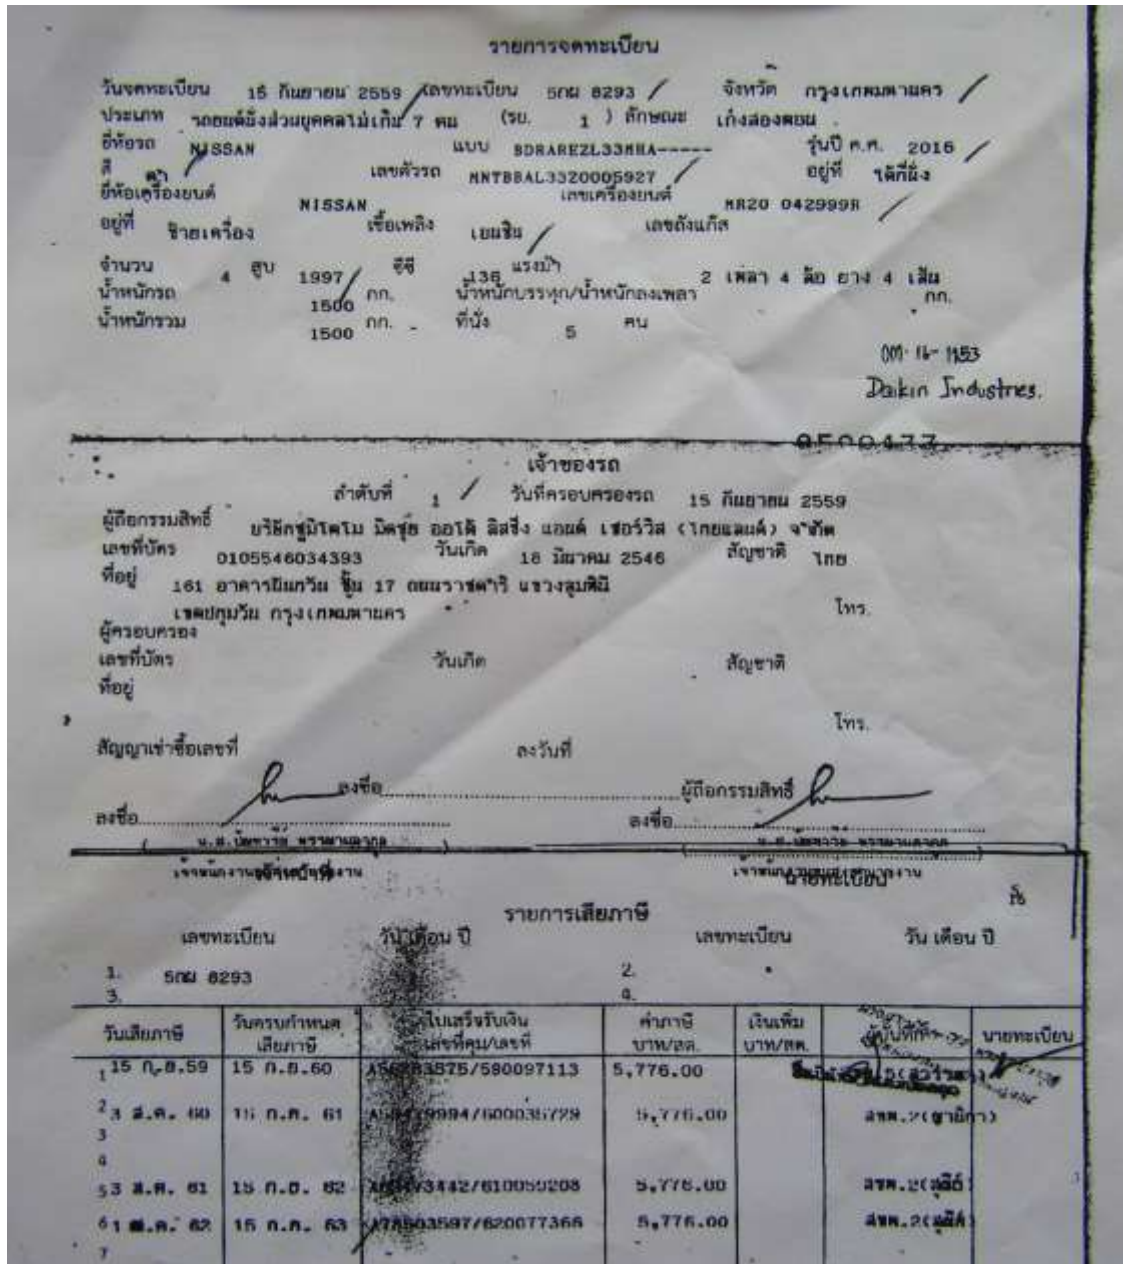 รายการจดทะเบียน
วันจดทะเบียน 15 กันยายน 2559 เลขทะเบียน 5กผ 8293 จังหวัด กรุงเทพมหานคร
ประเภท รถยนต์นั่งส่วนบุคคลไม่เกิน 7 คน (รย. 1 ) ลักษณะ เก๋งสองตอน
ยี่ห้อรถ NISSAN แบบ BDRAREZL33MHA----- รุ่นปี ค.ศ. 2016
สี ดำ เลขตัวรถ MNTBBAL3320005927 อยู่ที่ ใต้ที่นั่ง
ยี่ห้อเครื่องยนต์ NISSAN เลขเครื่องยนต์ MR20 042999R
อยู่ที่ ซ้ายเครื่อง เชื้อเพลิง เบนซิน เลขถังแก๊ส
จำนวน 4 สูบ 1997 ซีซี 136 แรงม้า 2 เพลา 4 ล้อ ยาง 4 เส้น
น้ำหนักรถ 1500 กก. น้ำหนักบรรทุก/น้ำหนักลงเพลา กก.
น้ำหนักรวม 1500 กก. ที่นั่ง 5 คน
Daikin Industries.
เจ้าของรถ
ลำดับที่ 1 วันที่ครอบครองรถ 15 กันยายน 2559
ผู้ถือกรรมสิทธิ์ บริษัทซูมิโตโม มิตซุย ออโต้ ลิสซิ่ง แอนด์ เซอร์วิส (ไทยแลนด์) จำกัด
เลขที่บัตร 0105546034393 วันเกิด 18 มีนาคม 2546 สัญชาติ ไทย
ที่อยู่ 161 อาคารนันทวัน ชั้น 17 ถนนราชดำริ แขวงลุมพินี
เขตปทุมวัน กรุงเทพมหานคร โทร.
ผู้ครอบครอง
เลขที่บัตร วันเกิด สัญชาติ
ที่อยู่
โทร.
สัญญาเช่าซื้อเลขที่ ลงวันที่
ลงชื่อ ผู้ถือกรรมสิทธิ์
ลงชื่อ ลงชื่อ
นายทะเบียน
รายการเสียภาษี
เลขทะเบียน วัน เดือน ปี เลขทะเบียน วัน เดือน ปี
1. 5กผ 8293 2.
3. 4.
วันเสียภาษี วันครบกำหนดเสียภาษี ใบเสร็จรับเงิน เลขที่คุม/เลขที่ ค่าภาษี บาท/สต. เงินเพิ่ม บาท/สต. ผู้บันทึก นายทะเบียน
1 15 ก.ย.59 15 ก.ย.60 /580097113 5,776.00
2 3 ส.ค. 60 15 ก.ย. 61 /600035729 5,776.00 สขพ.2
3
4
5 3 ส.ค. 61 15 ก.ย. 62 /610059208 5,776.00 สขพ.2
6 1 62 15 ก.ย. 63 /620077366 5,776.00 สขพ.2
7